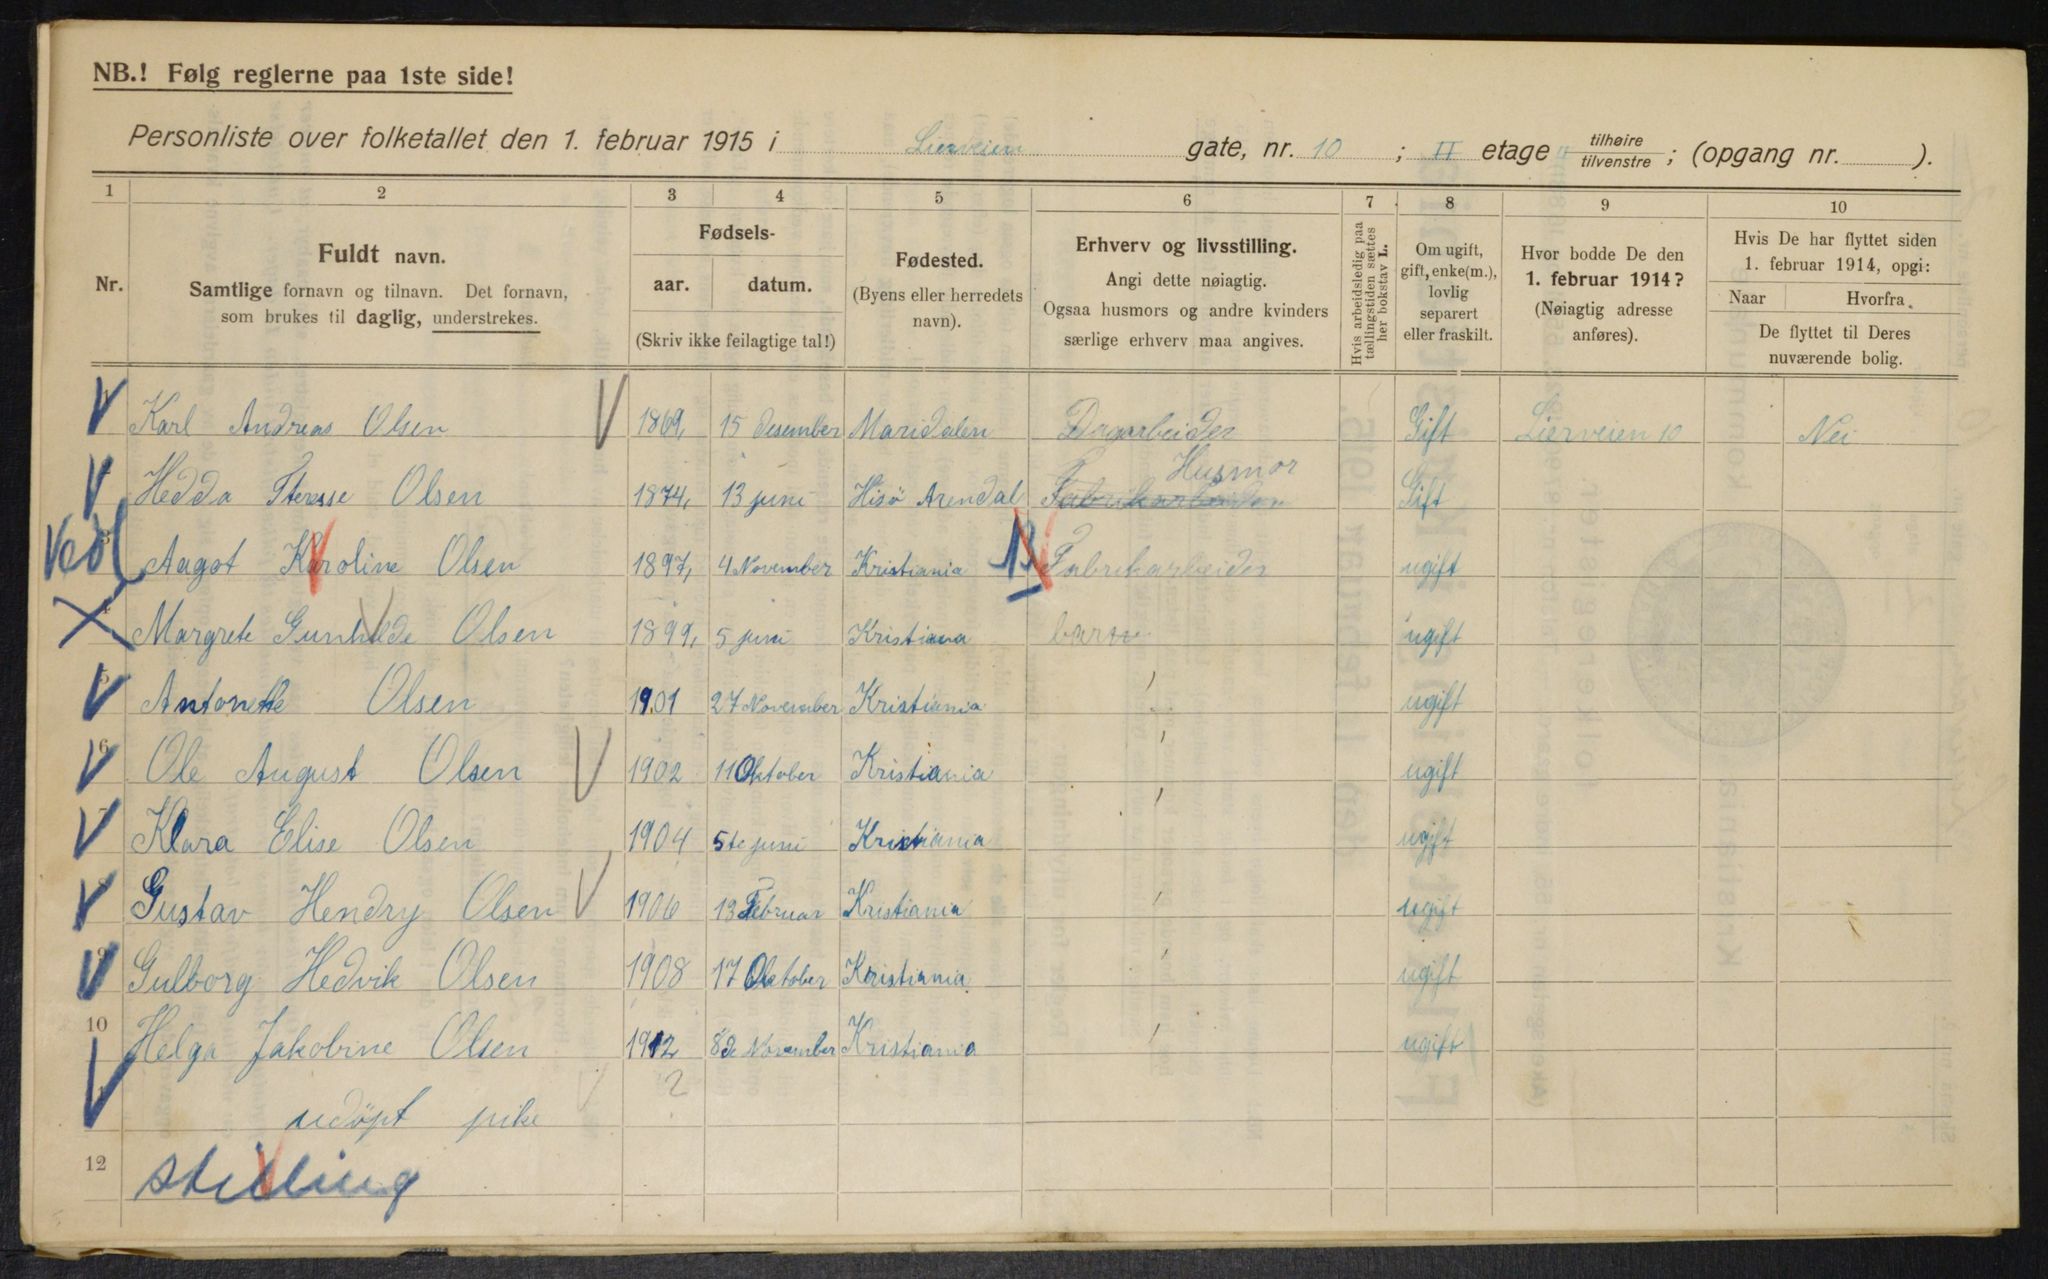 NB.! Følg reglerne paa 1ste side!
Personliste over folketallet den 1. februar 1915 i Lierveien gate, nr. 10 ; II etage tilhøire tilvenstre ; (opgang nr. ).
1 2 3 4 5 6 7 8 9 10
Nr.
Fuldt navn.
Samtlige fornavn og tilnavn. Det fornavn,
som brukes til daglig, understrekes.
Fødsels-
aar. datum.
(Skriv ikke feilagtige tal!)
Fødested.
(Byens eller herredets
navn).
Erhverv og livsstilling.
Angi dette nøiagtig.
Ogsaa husmors og andre kvinders
særlige erhverv maa angives.
Hvis arbeidsledig paa
tællingstiden sættes
her bokstav L.
Om ugift,
gift, enke(m.),
lovlig
separert
eller fraskilt.
Hvor bodde De den
1. februar 1914?
(Nøiagtig adresse
anføres).
Hvis De har flyttet siden
1. februar 1914, opgi:
Naar Hvorfra.
De flyttet til Deres
nuværende bolig.
Karl Andreas Olsen 1869, 15 desember Maridalen Dagarbeider Gift Lierveien 10 Nei
Husmor
Hedda Therese Olsen 1874, 13 juni Hisö Arendal Fabrikarbeider Gift
3 Aagot Karoline Olsen 1897, 4 November Kristiania Fabrikarbeider ugift
4 Margrete Gunhilde Olsen 1899, 5 juni Kristiana barn ugift
5 Antonette Olsen 1901 27 November Kristiania ugift
6 Ole August Olsen 1902 11 Oktober Kristiania ugift
7 Klara Elise Olsen 1904 5te juni Kristiania ugift
8 Gustav Hendry Olsen 1906 13 Februar Kristiania ugift
9 Gulborg Hedvik Olsen 1908 17 Oktober Kristiania ugift
10 Helga Jakobine Olsen 1912 8de November Kristiania ugift
2
udöpt pike
12 stilling